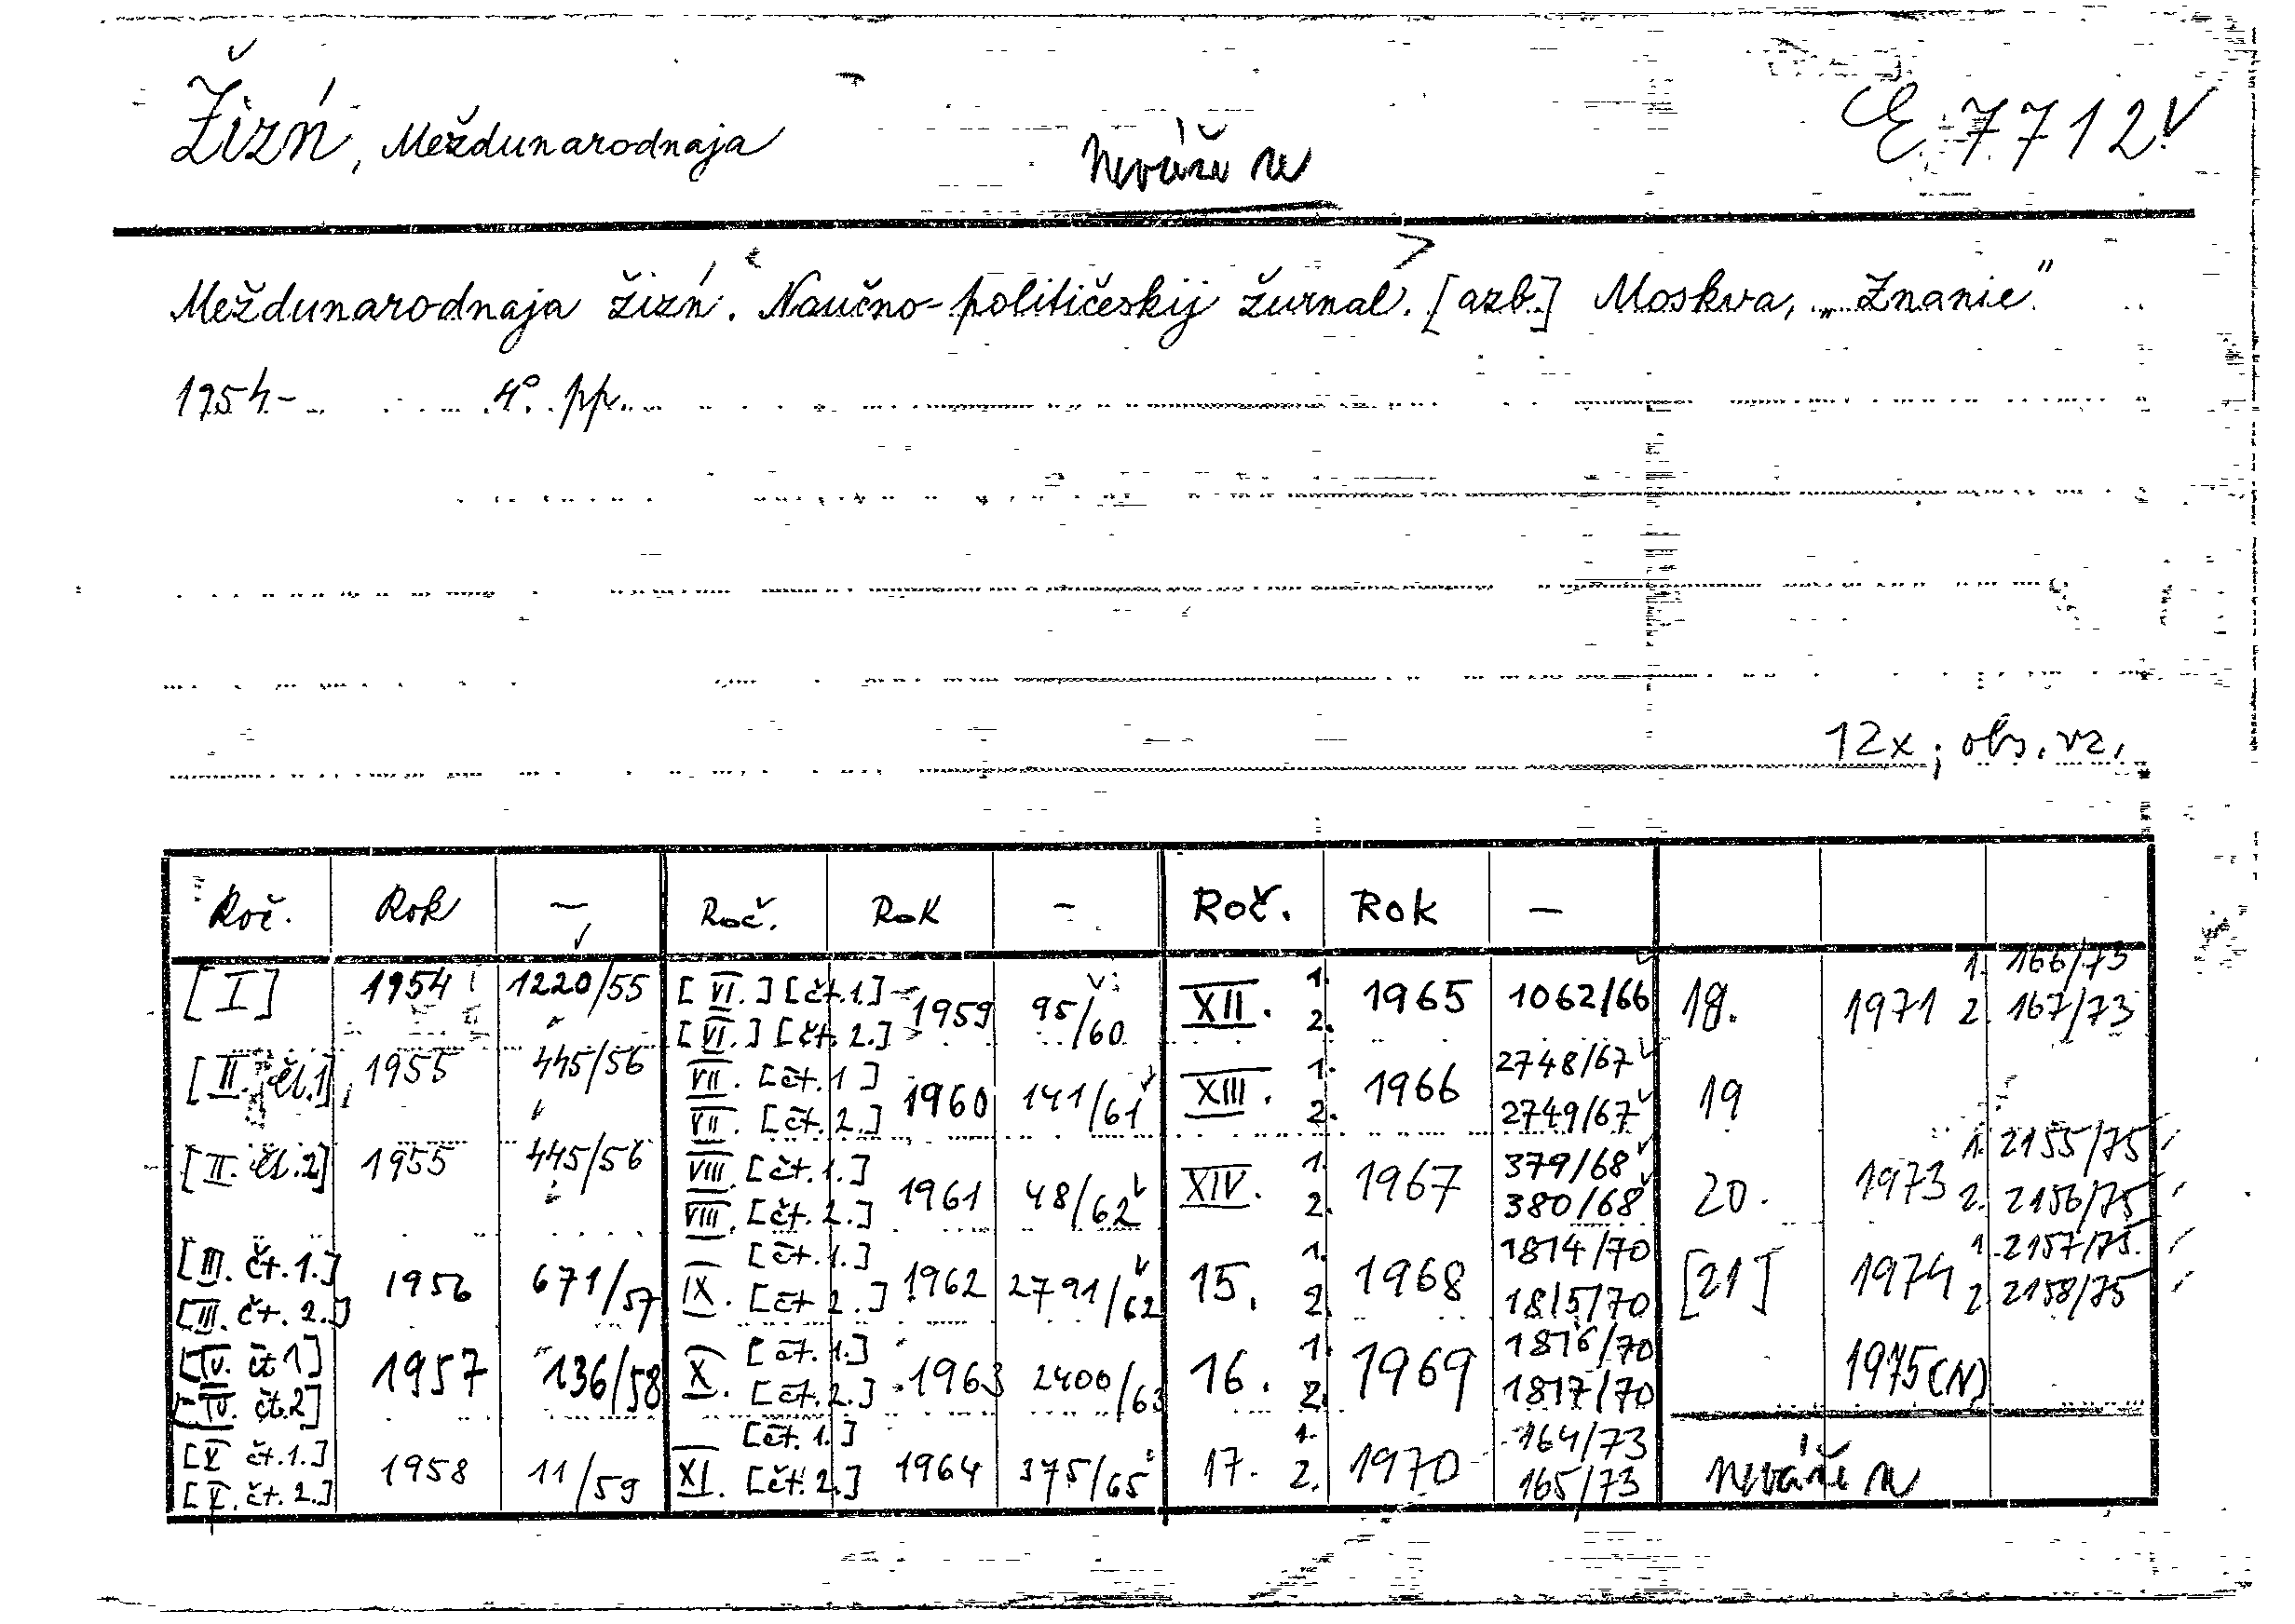 Žizń, Meždunarodnaja
Neváže se
E 7712
Meždunarodnaja žizń. Naučno-političeskij žurnal. [azb.] Moskva, „Znanie"
1954- 4° pp.
12x; obs. vz.
Roč. Rok — Roč. Rok - Roč. Rok —
[I] 1954 1220/55
[II. čl.1] 1955 445/56
[II. čl.2] 1955 445/56
[III. čt.1.]
[III. čt. 2.] 1956 671/57
[IV. čt 1]
[IV. čt.2] 1957 136/58
[V čt.1.]
[V. čt. 2.] 1958 11/59
[VI.] [čt.1.]
[VI.] [čt. 2.] 1959 95/60
VII. [čt. 1]
VII. [čt. 2.] 1960 141/61
VIII. [čt.1.]
VIII. [čt. 2.] 1961 48/62
[čt.1.]
IX. [čt 2.] 1962 2791/62
[čt. 1.]
X. [čt.2.] 1963 2400/63
[čt. 1.]
XI. [čt. 2.] 1964 375/65
XII. 1. 2. 1965 1062/66
XIII. 1. 2. 1966 2748/67
2749/67
XIV. 1. 2. 1967 379/68
380/68
15. 1. 2. 1968 1814/70
1815/70
16. 1. 2. 1969 1816/70
1817/70
17. 1. 2. 1970 164/73
165/73
18. 1971 1. 166/73
2. 167/73
19
20. 1973 1. 2155/75
2. 2156/75
[21] 1974 1. 2157/75
2. 2158/75
1975 (N)
Neváže se